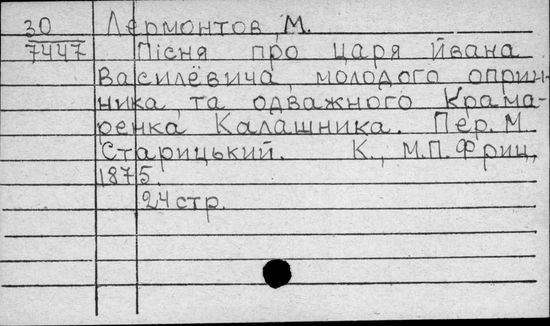 30 Лермонтов, М.
7447 Пісня про царя Йвана
Василёвича, молодого оприч-
ника, та одважного Крама-
ренка Калашника. Пер. М.
Старицький. К., М.П. Фриц,
1875.
24 стр.